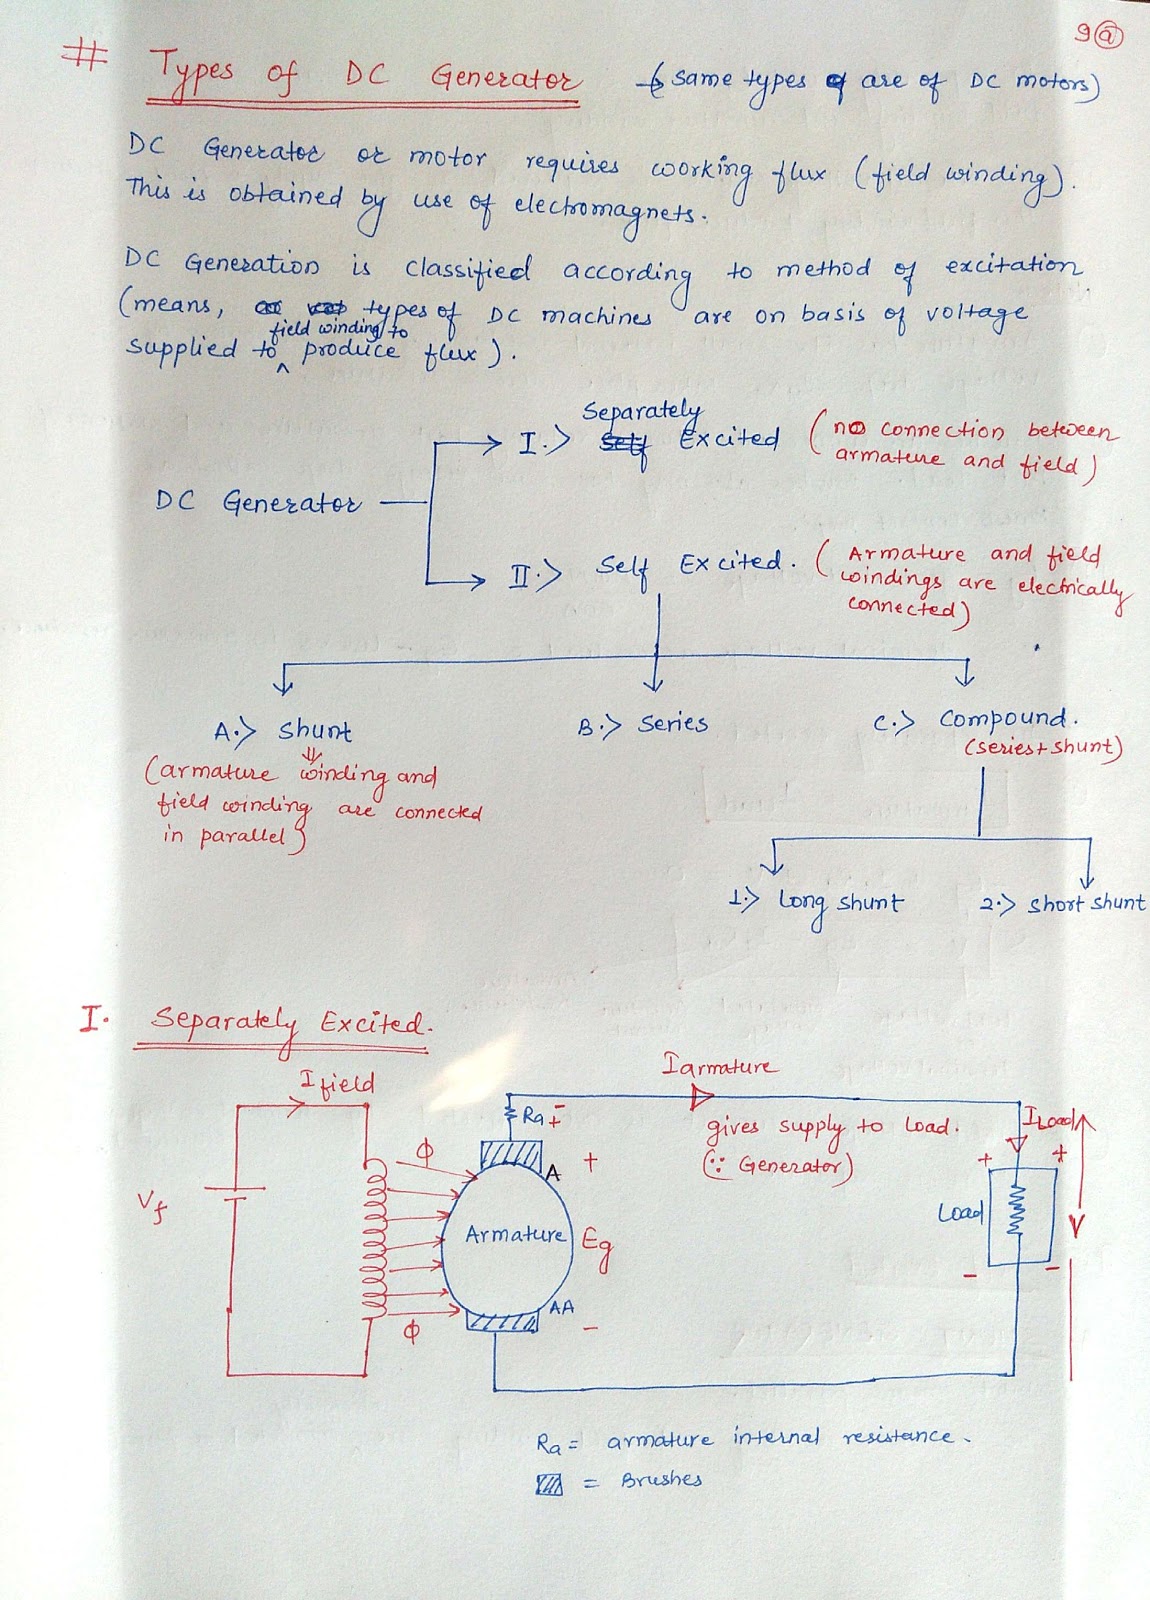 9ⓐ
# Types of DC Generator (same types are of DC motors)
DC Generator or motor requires working flux (field winding).
This is obtained by use of electromagnets.
DC Generation is classified according to method of excitation
(means, types of DC machines are on basis of voltage
field winding to
supplied to ^ produce flux).
Separately
I.> Self Excited (no connection between
armature and field)
DC Generator
II.> Self Excited. (Armature and field
windings are electrically
connected)
A.> Shunt
B.> Series
C.> Compound.
(series+shunt)
⇓
(armature winding and
field winding are connected
in parallel)
1.> Long shunt
2.> Short shunt
I. Separately Excited.
I armature
I field
Ra + -
gives supply to Load.
(∵ Generator)
I Load
ϕ
+
A
+ +
Vf
Armature
Eg
Load
V
- -
AA
ϕ
-
Ra = armature internal resistance.
= Brushes